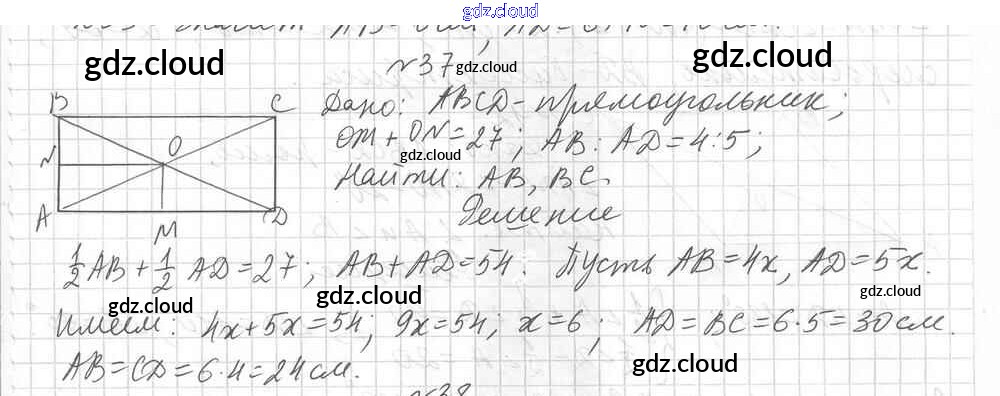 gdz.cloud
gdz.cloud
gdz.cloud
№37 gdz.cloud
B C
Дано: ABCD - прямоугольник;
N O
OM + ON = 27; AB : AD = 4:5;
gdz.cloud
Найти: AB, BC.
A M D
Решение
1/2 AB + 1/2 AD = 27; AB + AD = 54. Пусть AB = 4x, AD = 5x.
gdz.cloud gdz.cloud gdz.cloud
Имеем: 4x + 5x = 54; 9x = 54; x = 6; AD = BC = 6·5 = 30 см.
AB = CD = 6·4 = 24 см.
gdz.cloud
№38